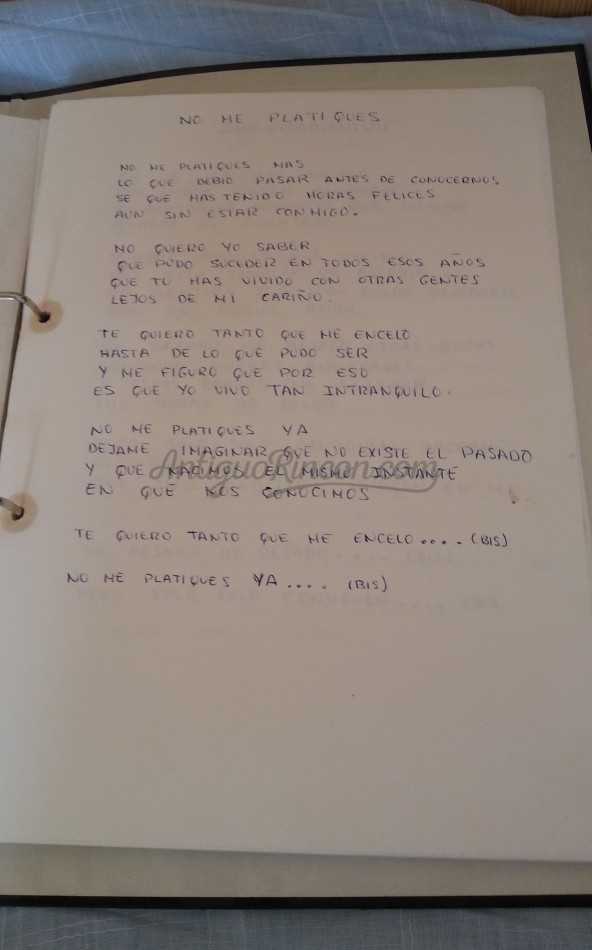 NO ME PLATIQUES
NO ME PLATIQUES MAS
LO QUE DEBIO PASAR ANTES DE CONOCERNOS
SE QUE HAS TENIDO HORAS FELICES
AUN SIN ESTAR CONMIGO.
NO QUIERO YO SABER
QUE PUDO SUCEDER EN TODOS ESOS AÑOS
QUE TU HAS VIVIDO CON OTRAS GENTES
LEJOS DE MI CARIÑO.
TE QUIERO TANTO QUE ME ENCELO
HASTA DE LO QUE PUDO SER
Y ME FIGURO QUE POR ESO
ES QUE YO VIVO TAN INTRANQUILO.
NO ME PLATIQUES YA
DEJAME IMAGINAR QUE NO EXISTE EL PASADO
Y QUE NACIMOS EL MISMO INSTANTE
AntiguoRincon.com
EN QUE NOS CONOCIMOS
TE QUIERO TANTO QUE ME ENCELO.... (BIS)
NO ME PLATIQUES YA.... (BIS)